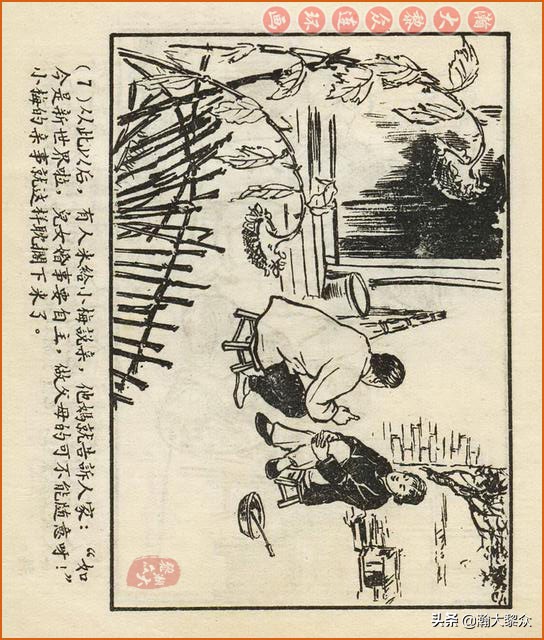 瀚大黎众連环画
(7)从此以后，有人来给小梅說亲，他妈就告訴人家：“如
今是新世界啦，兒女婚事要自主，做父母的可不能随意呀！”
小梅的亲事就这样耽搁下来了。
头条 @瀚大黎众